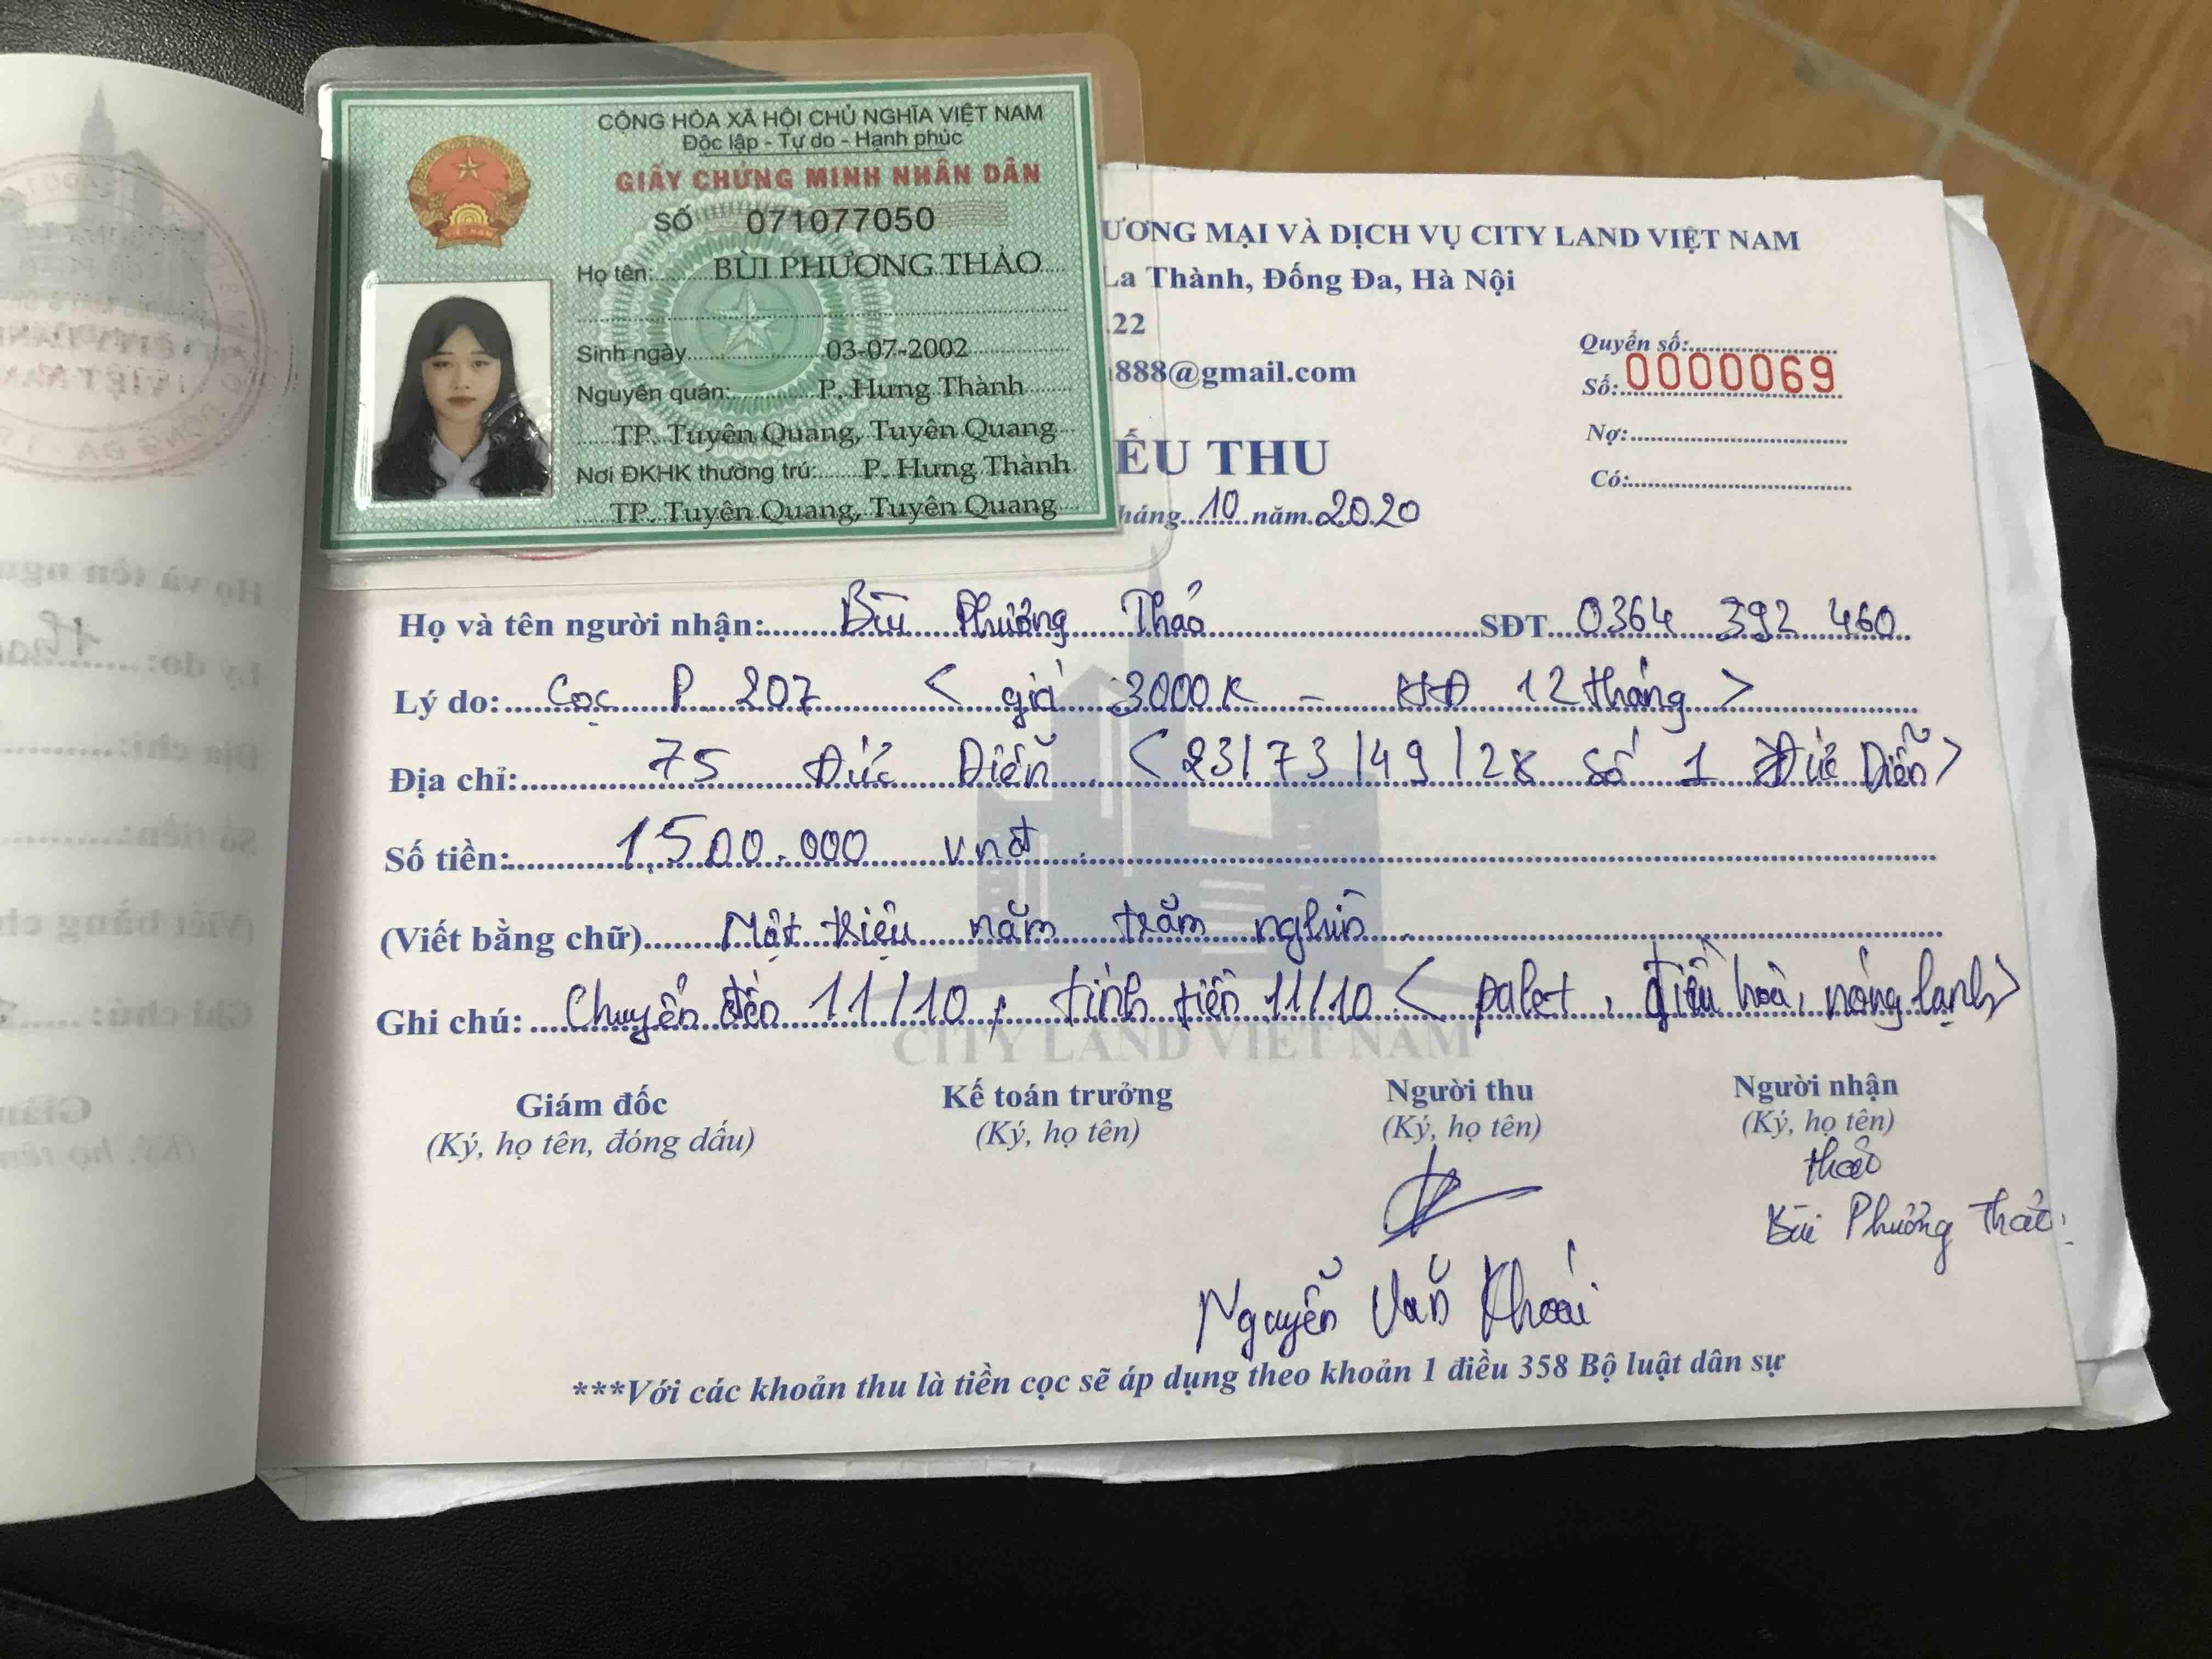 CỘNG HÒA XÃ HỘI CHỦ NGHĨA VIỆT NAM
Độc lập - Tự do - Hạnh phúc
GIẤY CHỨNG MINH NHÂN DÂN
SỐ 071077050
Họ tên: BÙI PHƯƠNG THẢO
Sinh ngày 03-07-2002
Nguyên quán: P. Hưng Thành
TP. Tuyên Quang, Tuyên Quang
Nơi ĐKHK thường trú: P. Hưng Thành
TP. Tuyên Quang, Tuyên Quang
ƯƠNG MẠI VÀ DỊCH VỤ CITY LAND VIỆT NAM
La Thành, Đống Đa, Hà Nội
.22
888@gmail.com
Quyển số:
Số: 0000069
Nợ:
Có:
ẾU THU
háng 10 năm 2020
Họ và tên người nhận: Bùi Phương Thảo SĐT 0364 392 460
Lý do: Cọc P. 207 < giá 3000K - HĐ 12 tháng >
Địa chỉ: 75 Đức Diễn < 23/73/49/2x số 1 Đức Diễn >
Số tiền: 1.500.000 vnđ
(Viết bằng chữ) Một triệu năm trăm nghìn
Ghi chú: Chuyển đến 11/10, tính tiền 11/10 < palet, điều hoà, nóng lạnh >
CITY LAND VIỆT NAM
Giám đốc Kế toán trưởng Người thu Người nhận
(Ký, họ tên, đóng dấu) (Ký, họ tên) (Ký, họ tên) (Ký, họ tên)
Thảo
Bùi Phương Thảo
Nguyễn Văn Khoái
***Với các khoản thu là tiền cọc sẽ áp dụng theo khoản 1 điều 358 Bộ luật dân sự